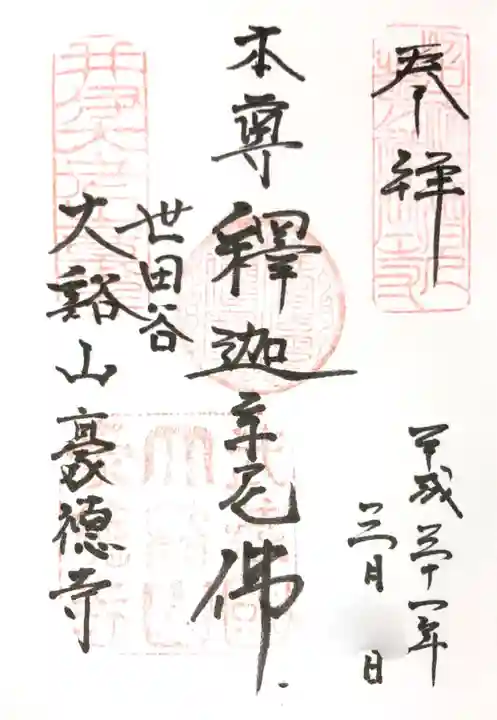 奉拝
平成三十一年
三月 日
本尊 釋迦牟尼佛
世田谷
大谿山豪徳寺